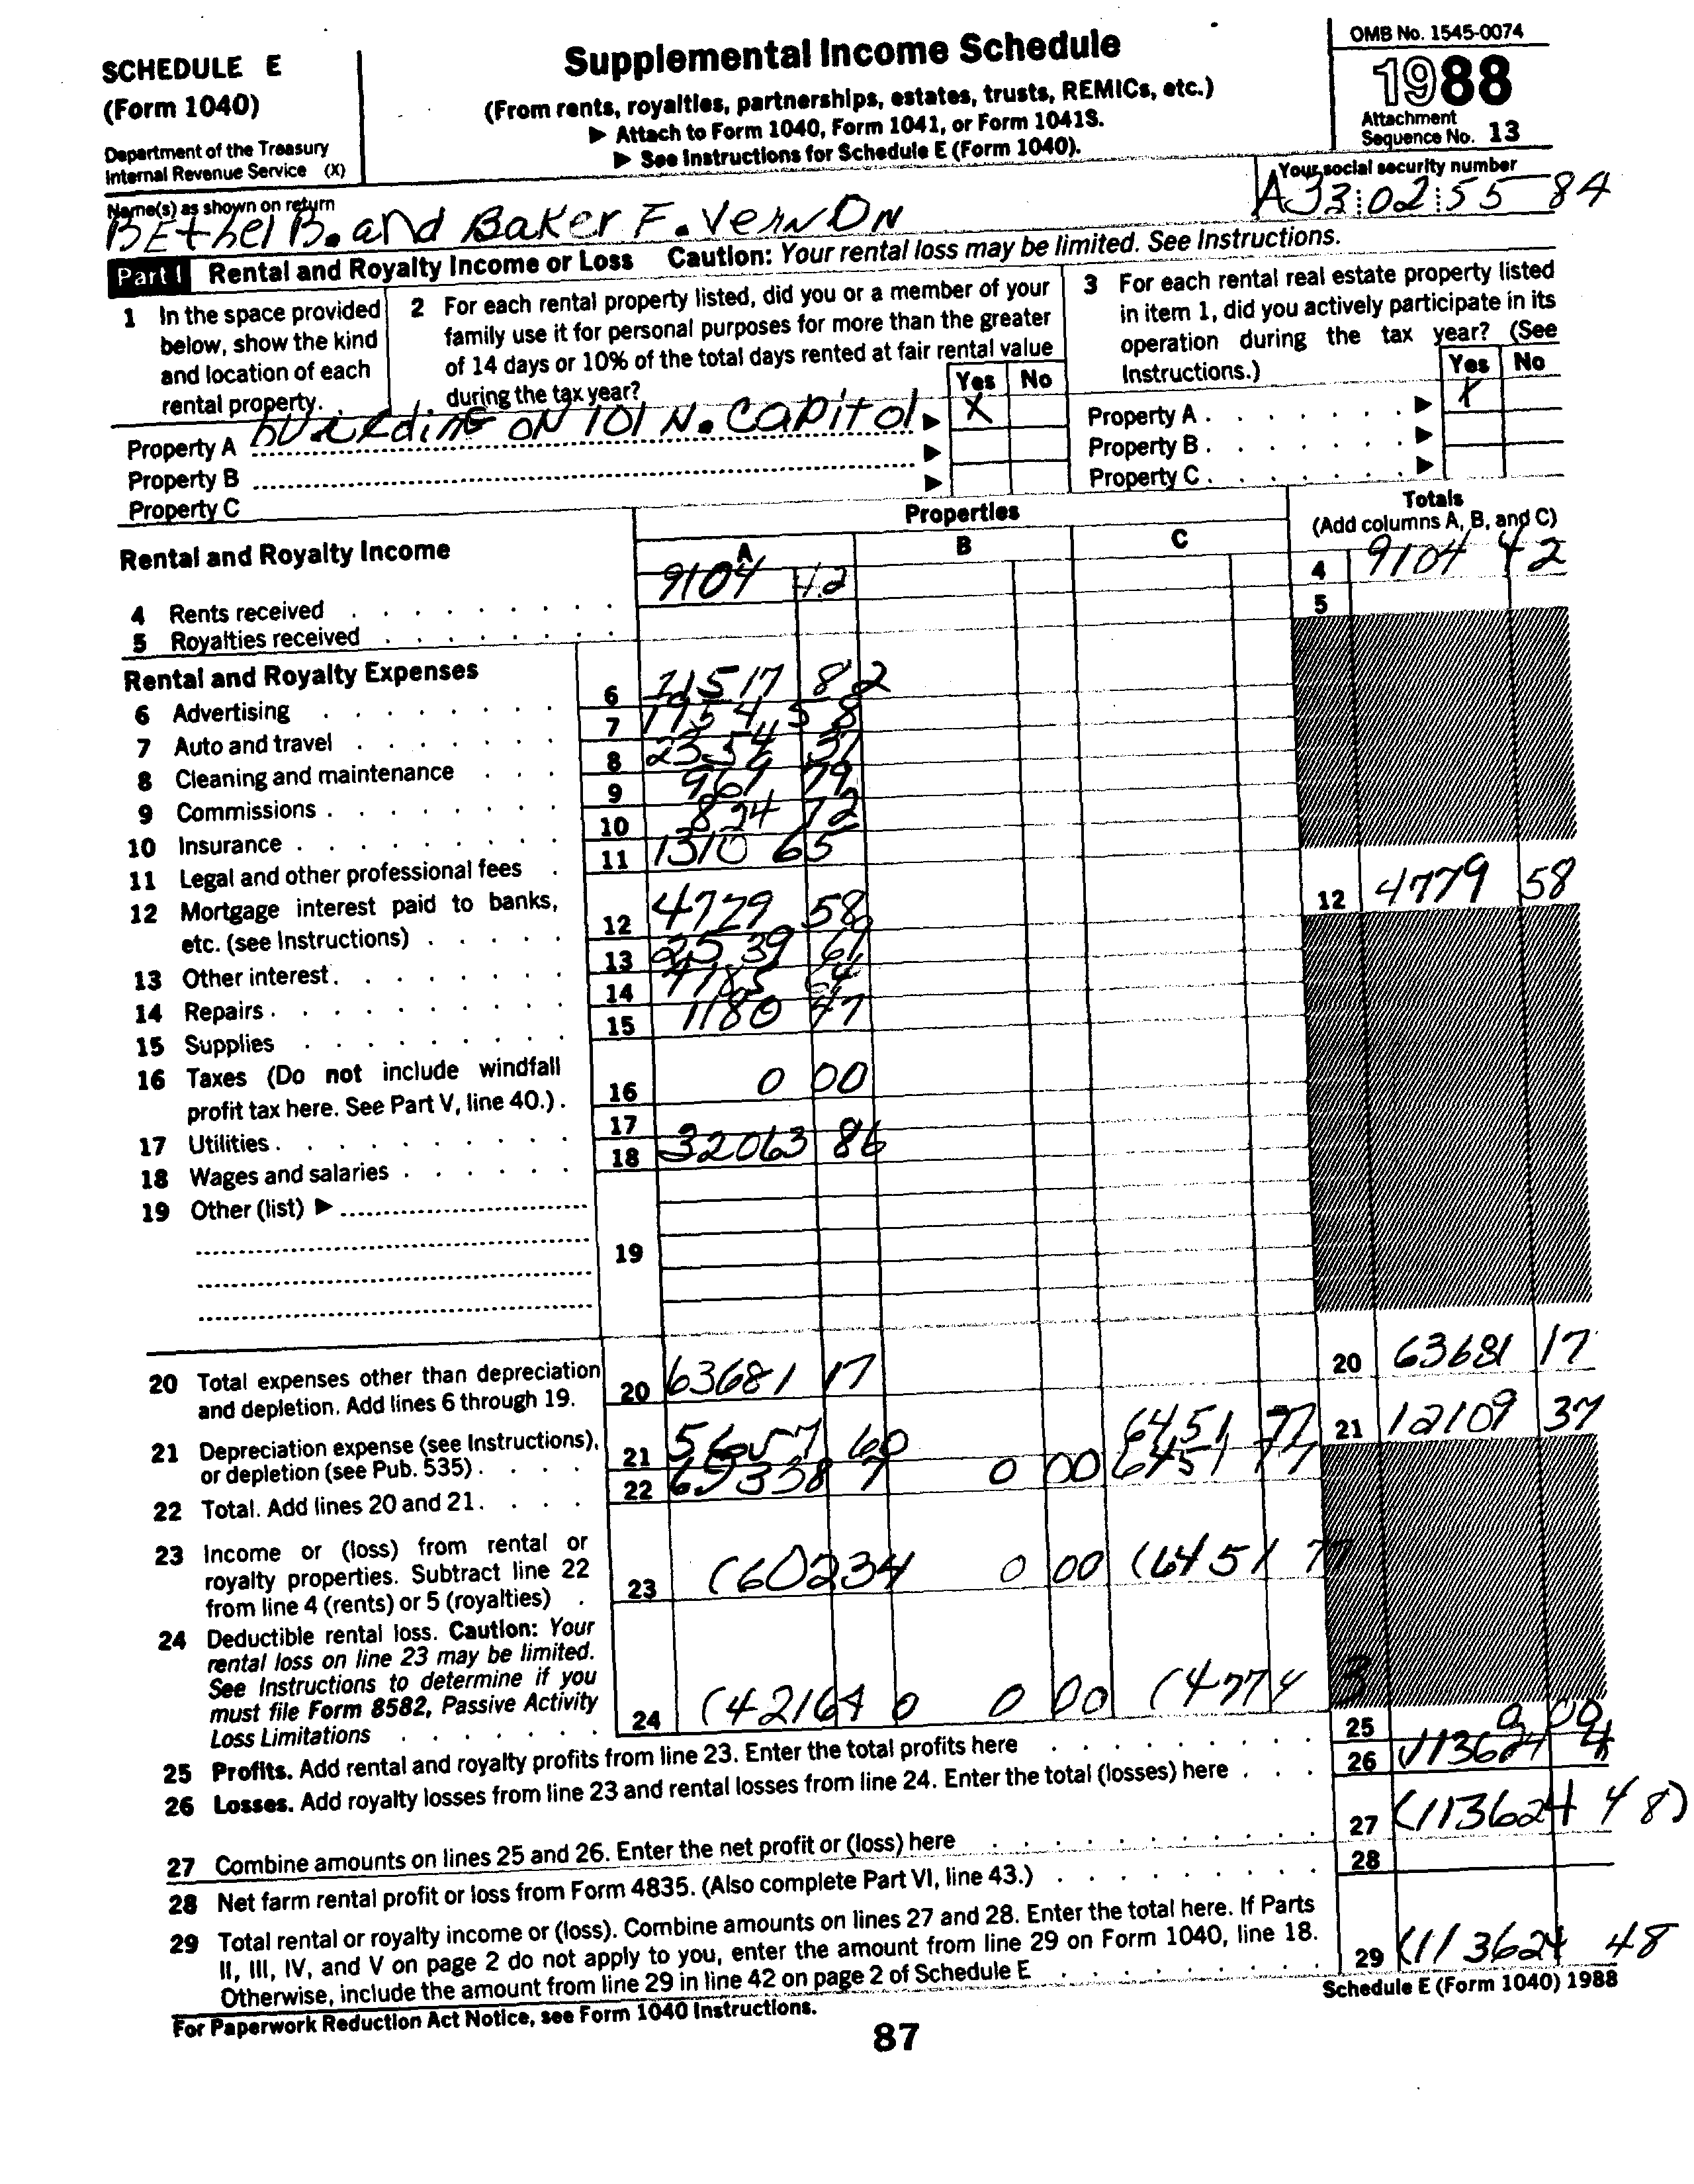 SCHEDULE E
(Form 1040)
Department of the Treasury
Internal Revenue Service (X)
Supplemental Income Schedule
(From rents, royalties, partnerships, estates, trusts, REMICs, etc.)
▶ Attach to Form 1040, Form 1041, or Form 1041S.
▶ See Instructions for Schedule E (Form 1040).
OMB No. 1545-0074
1988
Attachment
Sequence No. 13
Name(s) as shown on return
BEthel B. and Baker F. VerNON
Your social security number
A33 02 55 84
Part I Rental and Royalty Income or Loss Caution: Your rental loss may be limited. See Instructions.
1 In the space provided
below, show the kind
and location of each
rental property.
2 For each rental property listed, did you or a member of your
family use it for personal purposes for more than the greater
of 14 days or 10% of the total days rented at fair rental value
during the tax year?
Yes No
3 For each rental real estate property listed
in item 1, did you actively participate in its
operation during the tax year? (See
Instructions.)
Yes No
Property A ON 101 N. CAPITOL ▶ X
Property B ▶
Property C ▶
Property A ▶ X
Property B ▶
Property C ▶
Rental and Royalty Income
Properties
A B C
Totals
(Add columns A, B, and C)
4 Rents received 9104 42 4 9104 42
5 Royalties received 5
Rental and Royalty Expenses
6 Advertising 6 11517 82
7 Auto and travel 7
8 Cleaning and maintenance 8
9 Commissions 9
10 Insurance 10
11 Legal and other professional fees 11 1310 65
12 Mortgage interest paid to banks,
etc. (see Instructions) 12 4779 58 12 4779 58
13 Other interest 13 2539 61
14 Repairs 14
15 Supplies 15 1180 47
16 Taxes (Do not include windfall
profit tax here. See Part V, line 40.) 16 0 00
17 Utilities 17
18 Wages and salaries 18 32063 86
19 Other (list) ▶
19
20 Total expenses other than depreciation
and depletion. Add lines 6 through 19. 20 63681 17 20 63681 17
21 Depreciation expense (see Instructions),
or depletion (see Pub. 535) 21 5657 60 6451 77 21 12109 37
22 Total. Add lines 20 and 21. 22 0 00 6451 77
23 Income or (loss) from rental or
royalty properties. Subtract line 22
from line 4 (rents) or 5 (royalties) 23 (60234 0 00 (6451 77
24 Deductible rental loss. Caution: Your
rental loss on line 23 may be limited.
See Instructions to determine if you
must file Form 8582, Passive Activity
Loss Limitations 24 (42164 0 0 00
25 Profits. Add rental and royalty profits from line 23. Enter the total profits here 25 0 00
26 Losses. Add royalty losses from line 23 and rental losses from line 24. Enter the total (losses) here 26
27 Combine amounts on lines 25 and 26. Enter the net profit or (loss) here 27 (113624 48)
28 Net farm rental profit or loss from Form 4835. (Also complete Part VI, line 43.) 28
29 Total rental or royalty income or (loss). Combine amounts on lines 27 and 28. Enter the total here. If Parts
II, III, IV, and V on page 2 do not apply to you, enter the amount from line 29 on Form 1040, line 18.
Otherwise, include the amount from line 29 in line 42 on page 2 of Schedule E 29 (113624 48
For Paperwork Reduction Act Notice, see Form 1040 Instructions.
Schedule E (Form 1040) 1988
87